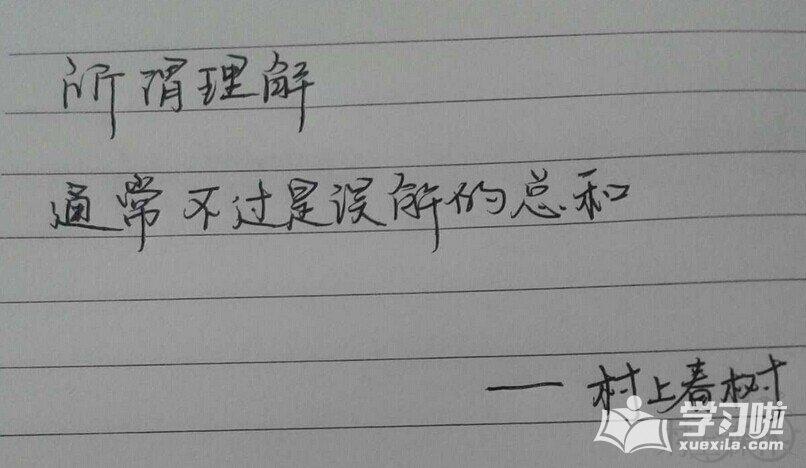 所谓理解
通常不过是误解的总和
——村上春树
学习啦
xuexila.com